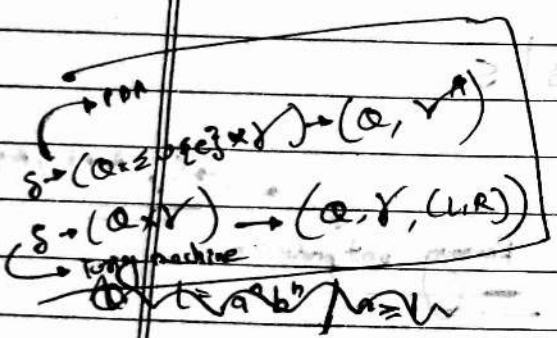 PDA
δ → (Q × Σ ∪ {ε} × γ) → (Q, γ*)
δ → (Q × γ) → (Q, γ, (L, R))
→ Turing machine
L = aⁿbⁿ / n ≥ 1